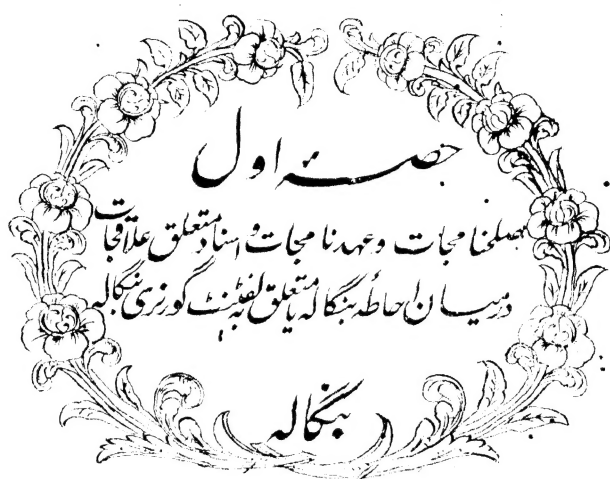 حصہ اول
صلحنامجات و عہدنامجات و اسناد متعلق علاقجات
درمیان احاطہ بنگالہ یا متعلق بہ لفٹننٹ گورنری بنگالہ
بنگالہ